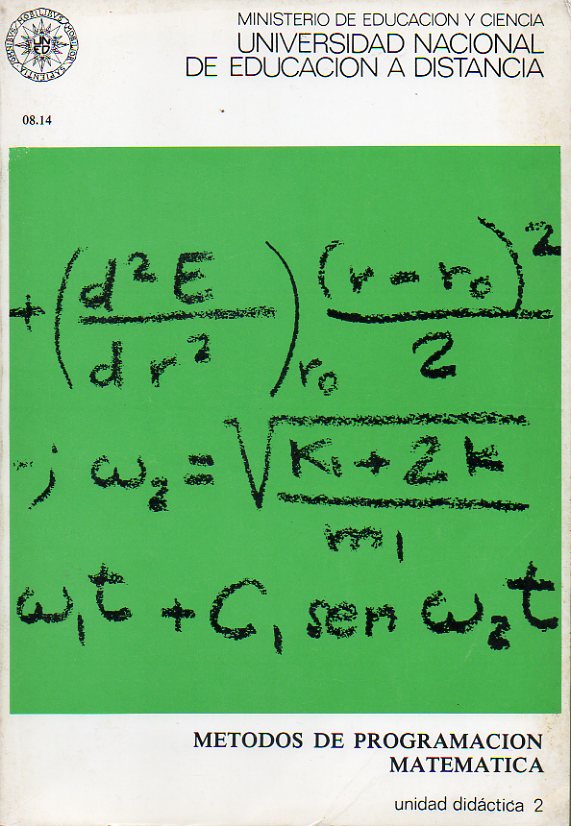 MINISTERIO DE EDUCACION Y CIENCIA
UNIVERSIDAD NACIONAL
DE EDUCACION A DISTANCIA
UNED
OMNIBUS MOBILIBUS MOBILIOR SAPIENTIA
08.14
+ (d²E / dr²)r₀ (r - r₀)² / 2
; ω₂ = √(K₁ + 2k / m₁)
ω₁t + C₁ sen ω₂t
METODOS DE PROGRAMACION
MATEMATICA
unidad didáctica 2